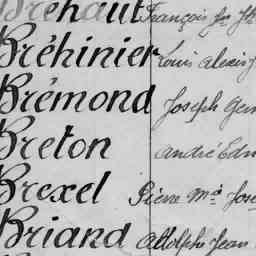 Bréhaut François
Bréhinier Louis Alexis
Brémond Joseph
Breton André
Brexel Pierre Mª
Briand Adolphe Jean